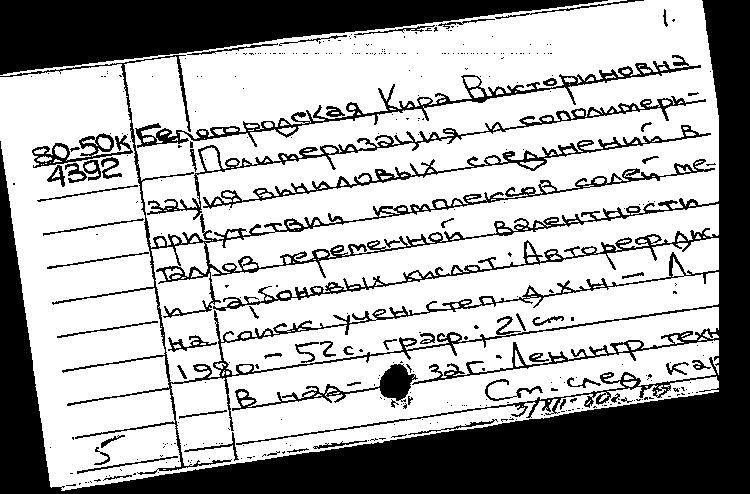 1.
80-50к
4392
Белогородская, Кира Викторовна
Полимеризация и сополимери-
зация виниловых соединений в
присутствии комплексов солей ме-
таллов переменной валентности
и карбоновых кислот: Автореф. дис.
на соиск. учен. степ. д.х.н. – Л.,
1980. – 52 с., граф.; 21 см.
В над- заг.: Ленингр. техн
См. след. кар
3/XII-80г.
5